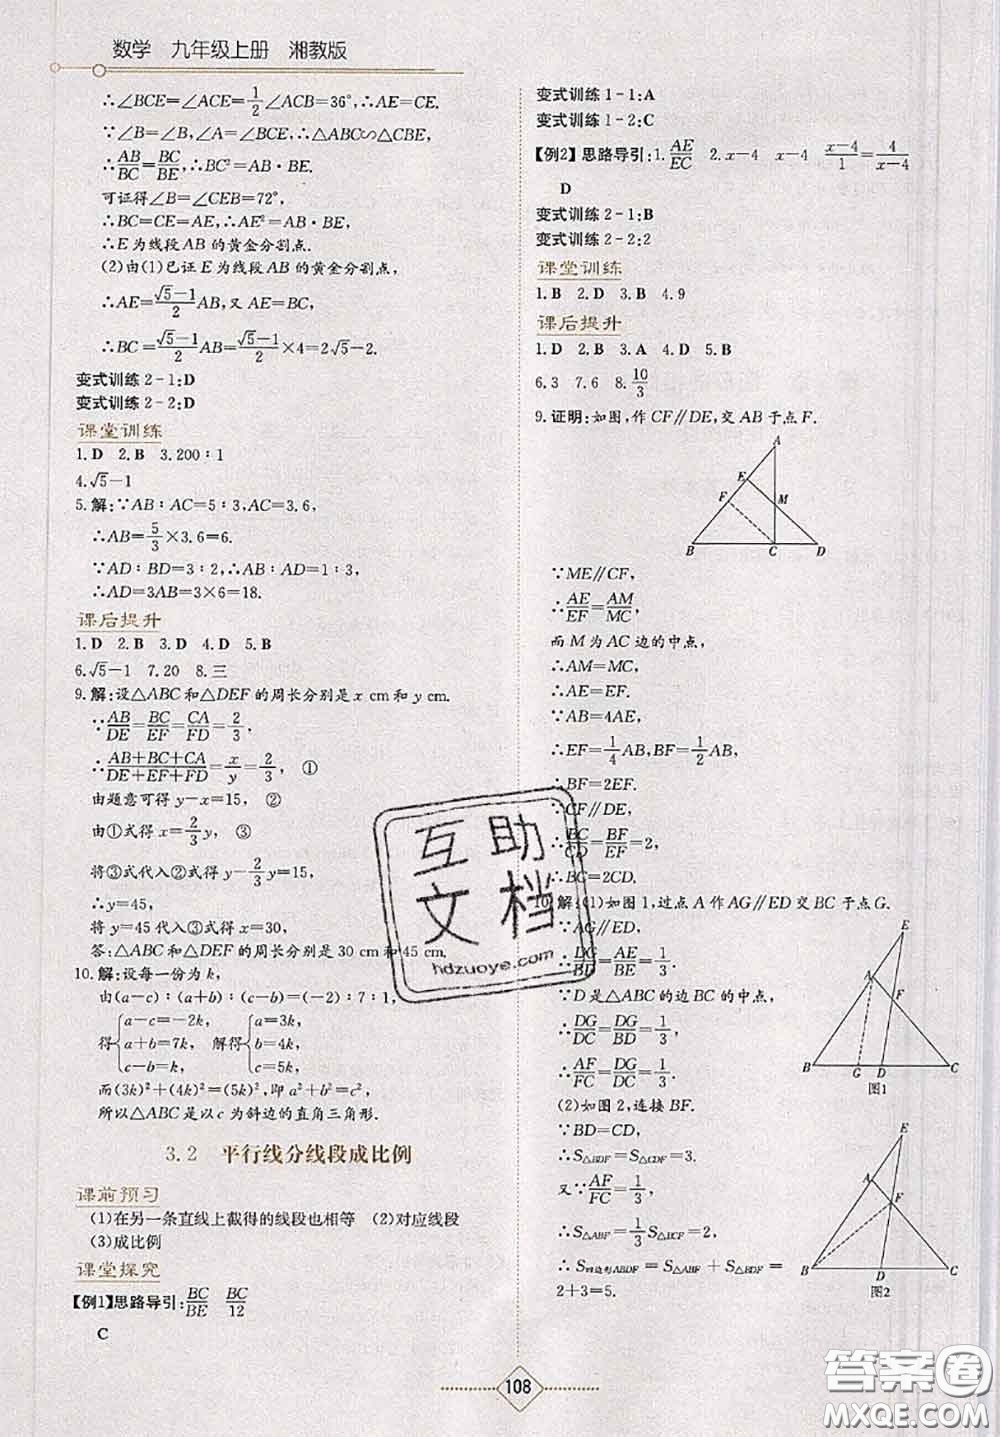 数学 九年级上册 湘教版
∴∠BCE=∠ACE=1/2∠ACB=36°,∴AE=CE.
∵∠B=∠B,∠A=∠BCE,∴△ABC∽△CBE,
∴AB/BC=BC/BE,∴BC²=AB·BE.
可证得∠B=∠CEB=72°.
∴BC=CE=AE,∴AE²=AB·BE,
∴E为线段AB的黄金分割点.
(2)由(1)已证E为线段AB的黄金分割点,
∴AE=(√5-1)/2 AB,又AE=BC,
∴BC=(√5-1)/2 AB=(√5-1)/2×4=2√5-2.
变式训练2-1:D
变式训练2-2:D
课堂训练
1.D 2.B 3.200∶1
4.√5-1
5.解:∵AB∶AC=5∶3,AC=3.6,
∴AB=5/3×3.6=6.
∵AD∶BD=3∶2,∴AB∶AD=1∶3,
∴AD=3AB=3×6=18.
课后提升
1.D 2.B 3.D 4.D 5.B
6.√5-1 7.20 8.三
9.解:设△ABC和△DEF的周长分别是x cm和y cm.
∵AB/DE=BC/EF=CA/FD=2/3,
∴(AB+BC+CA)/(DE+EF+FD)=x/y=2/3, ①
由题意可得y-x=15, ②
由①式得x=2/3y, ③
将③式代入②式得y-2/3y=15,
∴y=45,
将y=45代入③式得x=30,
答:△ABC和△DEF的周长分别是30 cm和45 cm.
10.解:设每一份为k,
由(a-c)∶(a+b)∶(c-b)=(-2)∶7∶1,
得{a-c=-2k, a+b=7k, c-b=k, 解得{a=3k, b=4k, c=5k,
而(3k)²+(4k)²=(5k)²,即a²+b²=c²,
所以△ABC是以c为斜边的直角三角形.
3.2 平行线分线段成比例
课前预习
(1)在另一条直线上截得的线段也相等 (2)对应线段
(3)成比例
课堂探究
【例1】思路导引:BC/BE BC/12
C
变式训练1-1:A
变式训练1-2:C
【例2】思路导引:1.AE/EC 2.x-4 x-4 (x-4)/1=4/(x-4)
D
变式训练2-1:B
变式训练2-2:2
课堂训练
1.B 2.D 3.B 4.9
课后提升
1.D 2.B 3.A 4.D 5.B
6.3 7.6 8.10/3
9.证明:如图,作CF∥DE,交AB于点F.
A
E
F
M
B C D
∵ME∥CF,
∴AE/EF=AM/MC.
而M为AC边的中点,
∴AM=MC,
∴AE=EF.
∵AB=4AE,
∴EF=1/4AB,BF=1/2AB,
∴BF=2EF.
∵CF∥DE,
∴BC/CD=BF/EF=2,
∴BC=2CD.
10.解:(1)如图1,过点A作AG∥ED交BC于点G.
∵AG∥ED,
∴DG/BD=AE/BE=1/3.
∵D是△ABC的边BC的中点,
∴DG/DC=DG/BD=1/3,
∴AF/FC=DG/DC=1/3.
E
A
F
B G D C
图1
(2)如图2,连接BF.
∵BD=CD,
∴S△BDF=S△CDF=3.
又∵AF/FC=1/3,
∴S△ABF=1/3S△BCF=2,
∴S四边形ABDF=S△ABF+S△BDF=
2+3=5.
E
A
F
B D C
图2
互助
文档
hdzuoye.com
108
答案圈
MXQE.COM